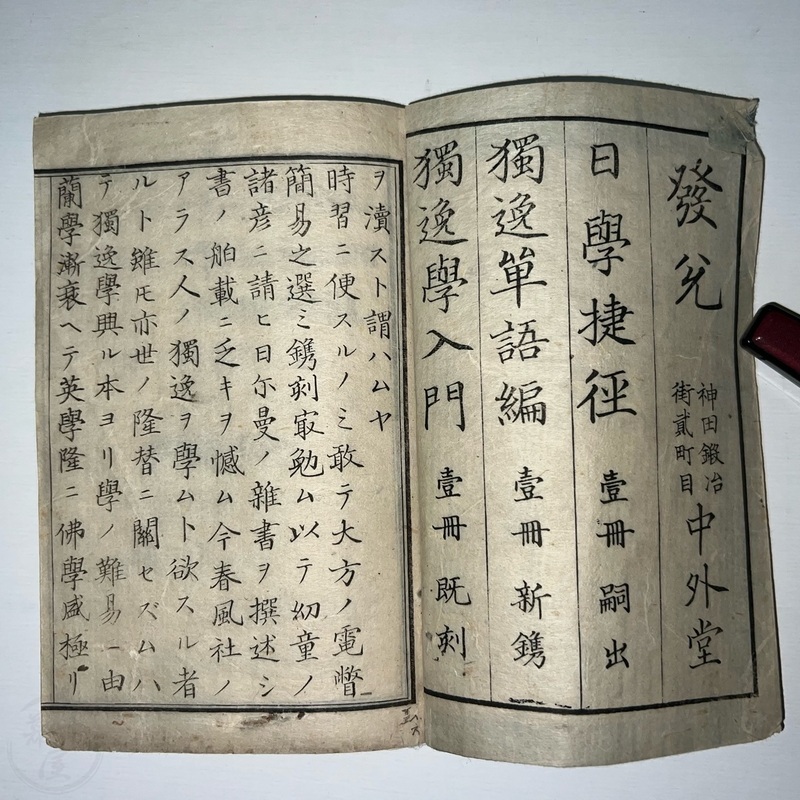 蘭學漸衰ヘテ英學隆ニ佛學盛極リ
テ獨逸學興ル本ヨリ學ノ難易ニ由
ルト雖𪜈亦世ノ隆替ニ關セズムハ
アラス人ノ獨逸ヲ學ムト欲スル者
書ノ舶載ニ乏キヲ憾ム今春風社ノ
諸彦ニ請ヒ日尓曼ノ雜書ヲ撰述シ
簡易之選ミ鐫刻㝡勉ム以テ幼童ノ
時習ニ便スルノミ敢テ大方ノ電瞥
ヲ瀆スト謂ハムヤ
獨逸學入門 壹冊既刻
獨逸單語編 壹冊新鐫
日學捷徑 壹冊嗣出
發兌
神田鍛冶
街貳町目
中外堂